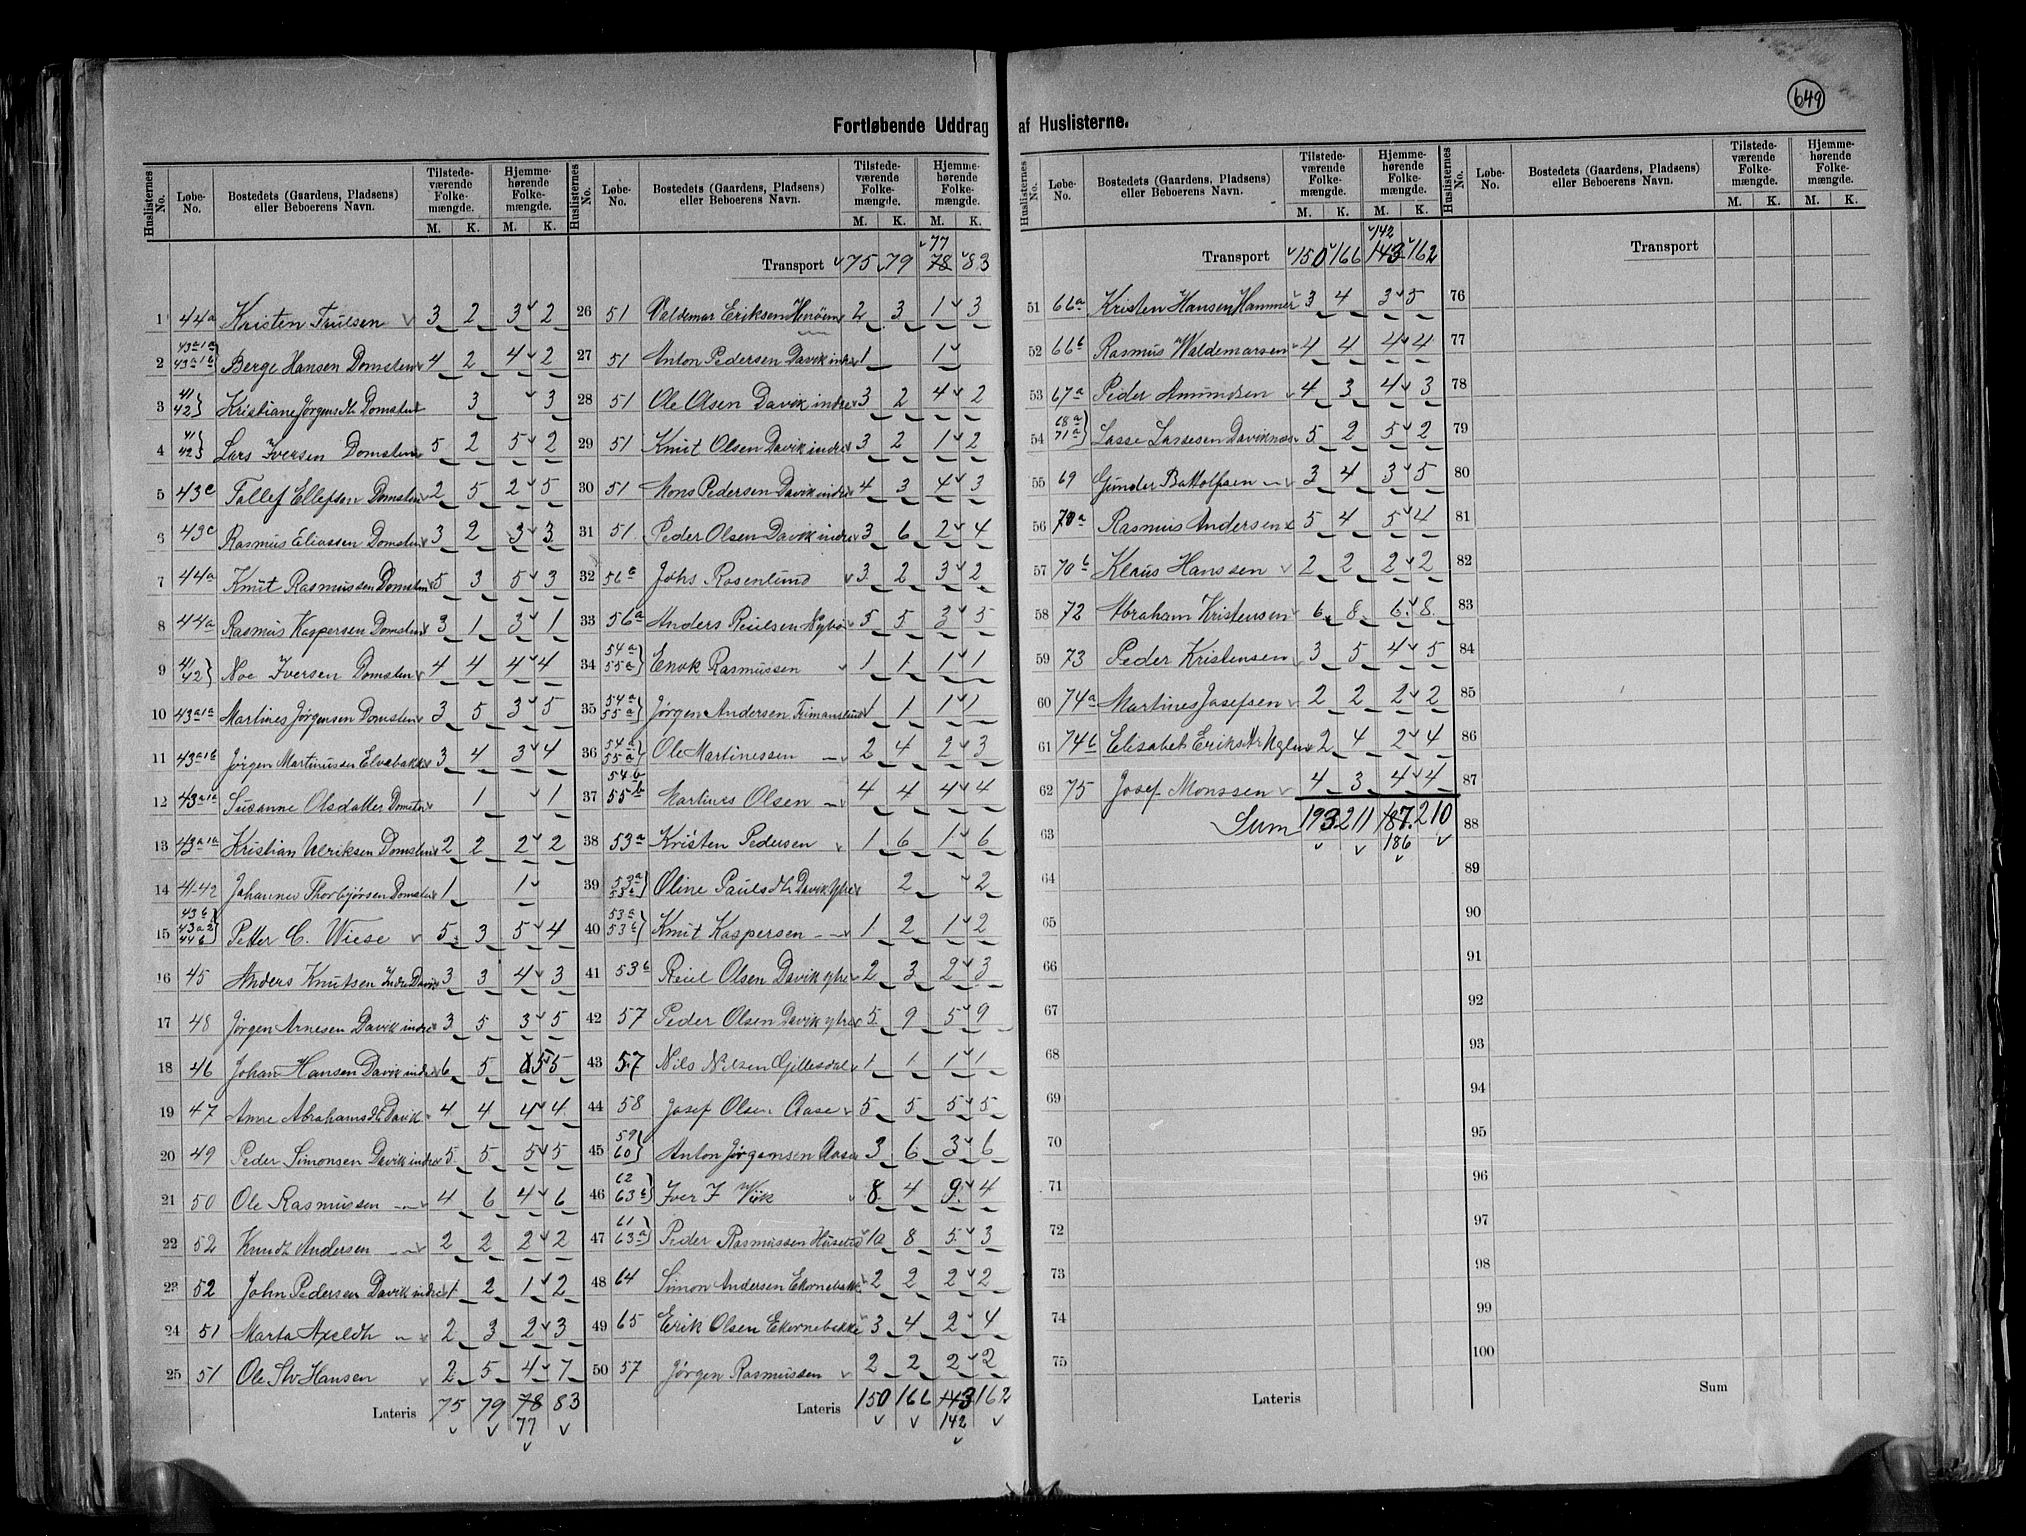 649
Fortløbende Uddrag af Huslisterne.
Huslisternes No. Løbe-No. Bostedets (Gaardens, Pladsens) eller Beboerens Navn. Tilstede-værende Folke-mængde. M. K. Hjemme-hørende Folke-mængde. M. K.
1 44a Kristen Truelsen 3 2 3 2
2 43a1a 43a1b Berge Hansen Domsten 4 2 4 2
3 41 42 Kristiane Jørgensdt Domsten 3 3
4 41 42 Lars Iversen Domsten 5 2 5 2
5 43c Tollef Ellefsen Domsten 2 5 2 5
6 43c Rasmus Eliassen Domsten 3 2 3 3
7 44a Knut Rasmussen Domsten 5 3 5 3
8 44a Rasmus Kaspersen Domsten 3 1 3 1
9 41 42 Noe Iversen Domsten 4 4 4 4
10 43a1a Martines Jørgensen Domsten 3 5 3 5
11 43a1b Jørgen Martinussen Elvebakke 3 4 3 4
12 43a1a Susanne Olsdatter Domsten 1 1
13 43a1a Kristian Ulriksen Domsten 2 2 2 2
14 41-42 Johannes Thorbjørsen Domsten 1 1
15 43b 43a2 44b Petter C. Wiese 5 3 5 4
16 45 Anders Knutsen Indre Davik 3 3 4 3
17 48 Jørgen Arnesen Davik indre 3 5 3 5
18 46 Johan Hansen Davik indre 6 5 5 5
19 47 Anne Abrahamsdt Davik 4 4 4 4
20 49 Peder Simonsen Davik indre 5 5 5 5
21 50 Ole Rasmussen — 4 6 4 6
22 52 Knudt Andersen — 2 2 2 2
23 52 John Pedersen Davik indre 1 2 1 2
24 51 Marta Axeldt — 2 3 2 3
25 51 Ole Slv Hansen 2 5 4 7
Lateris 75 79 78 83
77
Huslisternes No. Løbe-No. Bostedets (Gaardens, Pladsens) eller Beboerens Navn. Tilstede-værende Folke-mængde. M. K. Hjemme-hørende Folke-mængde. M. K.
77
Transport 75 79 78 83
26 51 Valdemar Eriksen 2 3 1 3
27 51 Anton Pedersen Davik indre 1 1
28 51 Ole Olsen Davik indre 3 2 4 2
29 51 Knut Olsen Davik indre 3 2 1 2
30 51 Mons Pedersen Davik indre 4 3 4 3
31 51 Peder Olsen Davik indre 3 6 2 4
32 56b Johs Rosenlund 3 2 3 2
33 56a Anders Reielsen Nybø 5 5 3 5
34 54a 55a Enok Rasmussen 1 1 1 1
35 54a 55a Jørgen Andersen 1 1 1 1
36 54a 55a Ole Martinessen — 2 4 2 3
37 54b 55b Martines Olsen — 4 4 4 4
38 53a Kristen Pedersen 1 6 1 6
39 53a Oline Paulsdt Davik ytre 2 2
40 53a 53b Knut Kaspersen — 1 2 1 2
41 53b Reiel Olsen Davik ytre 2 3 2 3
42 57 Peder Olsen Davik ytre 5 9 5 9
43 57 Nils Nilsen Gjillesdal 1 1 1 1
44 58 Josef Olsen Aase 5 5 5 5
45 59 60 Anton Jørgensen Aase 3 6 3 6
46 62 63b Iver I Vik 8 4 9 4
47 61 63a Peder Rasmussen 10 8 5 3
48 64 Simon Andersen Ekornebakke 2 2 2 2
49 65 Erik Olsen Ekornebakke 3 4 2 4
50 57 Jørgen Rasmussen 2 2 2 2
Lateris 150 166 143 162
142
Huslisternes No. Løbe-No. Bostedets (Gaardens, Pladsens) eller Beboerens Navn. Tilstede-værende Folke-mængde. M. K. Hjemme-hørende Folke-mængde. M. K.
142
Transport 150 166 143 162
51 66a Kristen Hansen Hammer 3 4 3 5
52 66b Rasmus Waldemarsen 4 4 4 4
53 67a Peder Amundsen 4 3 4 3
54 68a 71a Lasse Lassesen Daviknes 5 2 5 2
55 69 Gunder Battolfsen — 3 4 3 5
56 70a Rasmus Andersen 5 4 5 4
57 70b Klaus Hanssen 2 2 2 2
58 72 Abraham Kristensen 6 8 6 8
59 73 Peder Kristensen 3 5 4 5
60 74a Martines Josefsen 2 2 2 2
61 74b Elisabet Eriksdtr 2 4 2 4
62 75 Josef Monssen 4 3 4 4
63 Sum 193 211 187 210
186
64
65
66
67
68
69
70
71
72
73
74
75
Lateris
Huslisternes No. Løbe-No. Bostedets (Gaardens, Pladsens) eller Beboerens Navn. Tilstede-værende Folke-mængde. M. K. Hjemme-hørende Folke-mængde. M. K.
Transport
76
77
78
79
80
81
82
83
84
85
86
87
88
89
90
91
92
93
94
95
96
97
98
99
100
Sum